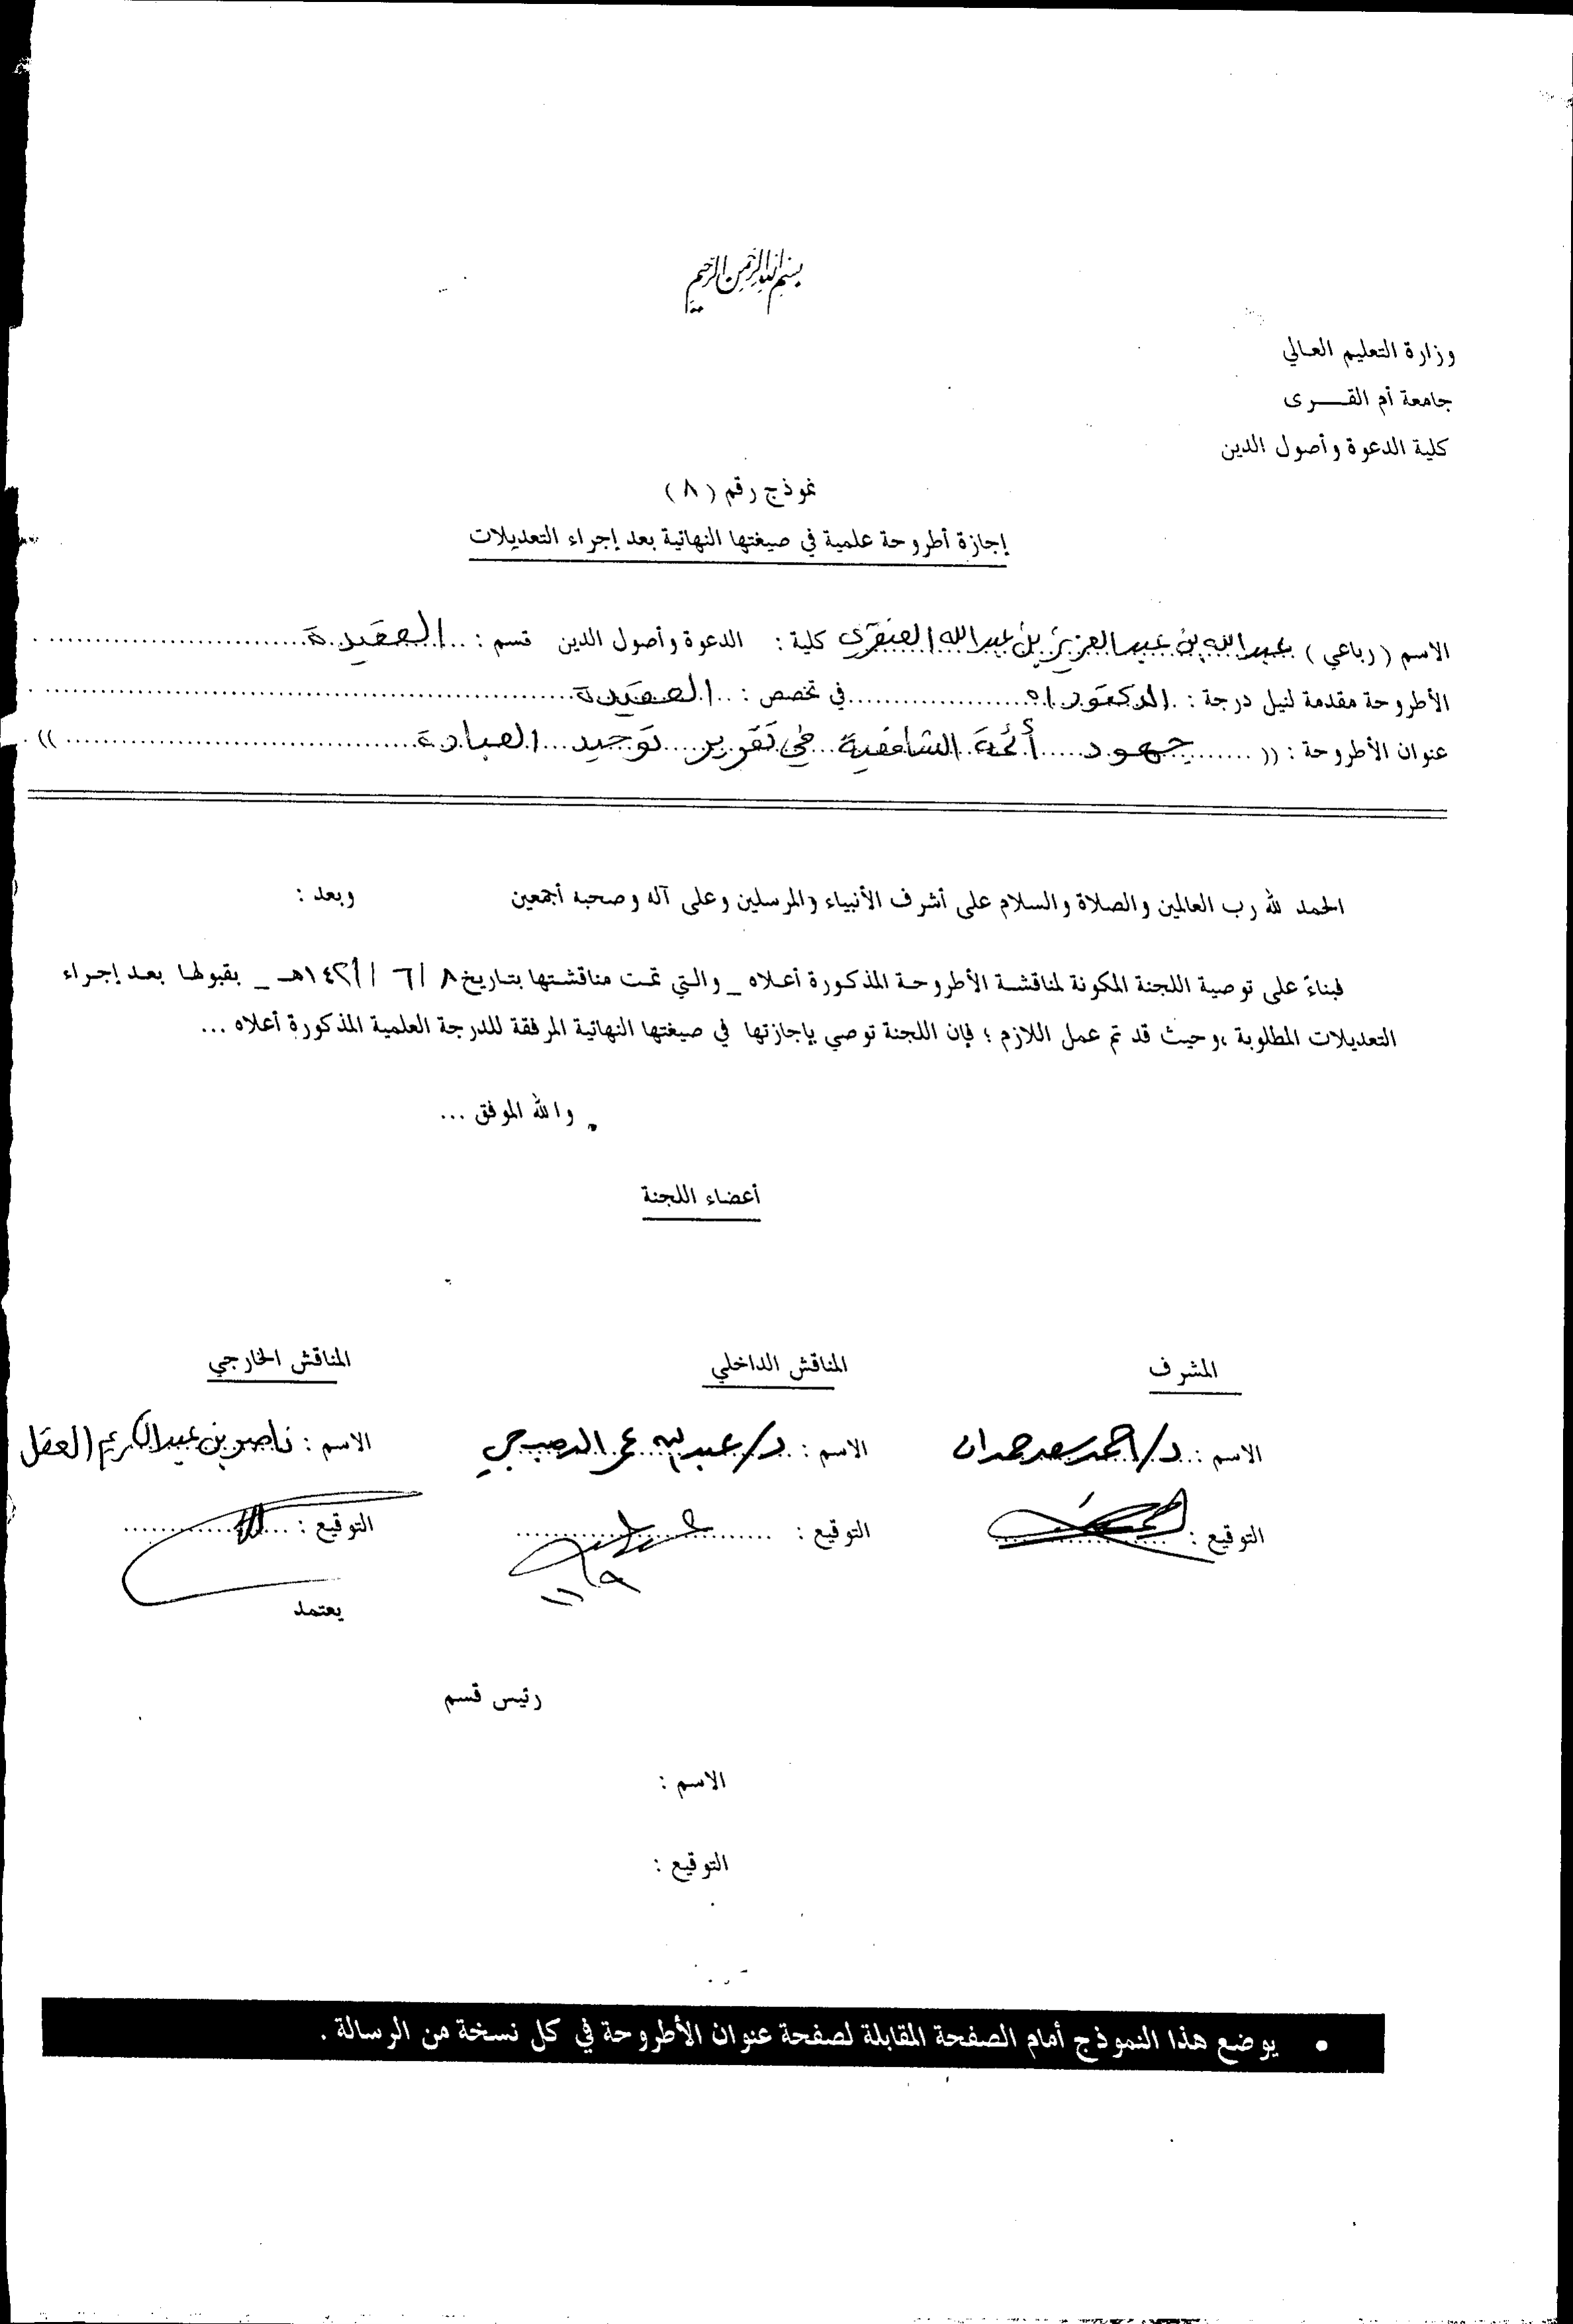 بسم الله الرحمن الرحيم
وزارة التعليم العالي
جامعة أم القـــرى
كلية الدعوة وأصول الدين
نموذج رقم (٨)
إجازة أطروحة علمية في صيغتها النهائية بعد إجراء التعديلات
الاسم (رباعي) عبدالله بن عبدالعزيز بن عبدالله العنقري كلية : الدعوة وأصول الدين قسم : العقيدة
الأطروحة مقدمة لنيل درجة : الدكتوراه في تخصص : العقيدة
عنوان الأطروحة : (( جهود أئمة الشافعية في تقرير توحيد العبادة ))
الحمد لله رب العالمين والصلاة والسلام على أشرف الأنبياء والمرسلين وعلى آله وصحبه أجمعين وبعد :
فبناءً على توصية اللجنة المكونة لمناقشة الأطروحة المذكورة أعلاه _ والتي تمت مناقشتها بتاريخ ٨ / ٦ / ١٤٢١هـ _ بقبولها بعد إجراء
التعديلات المطلوبة ،وحيث قد تم عمل اللازم ؛ فإن اللجنة توصي بإجازتها في صيغتها النهائية المرفقة للدرجة العلمية المذكورة أعلاه ...
والله الموفق ...
أعضاء اللجنة
المشرف المناقش الداخلي المناقش الخارجي
الاسم : د/ احمد سعد حمدان الاسم : د/ عبدالله عمر الدميجي الاسم : ناصر بن عبدالكريم العقل
التوقيع : التوقيع : التوقيع :
يعتمد
رئيس قسم
الاسم :
التوقيع :
• يوضع هذا النموذج أمام الصفحة المقابلة لصفحة عنوان الأطروحة في كل نسخة من الرسالة .